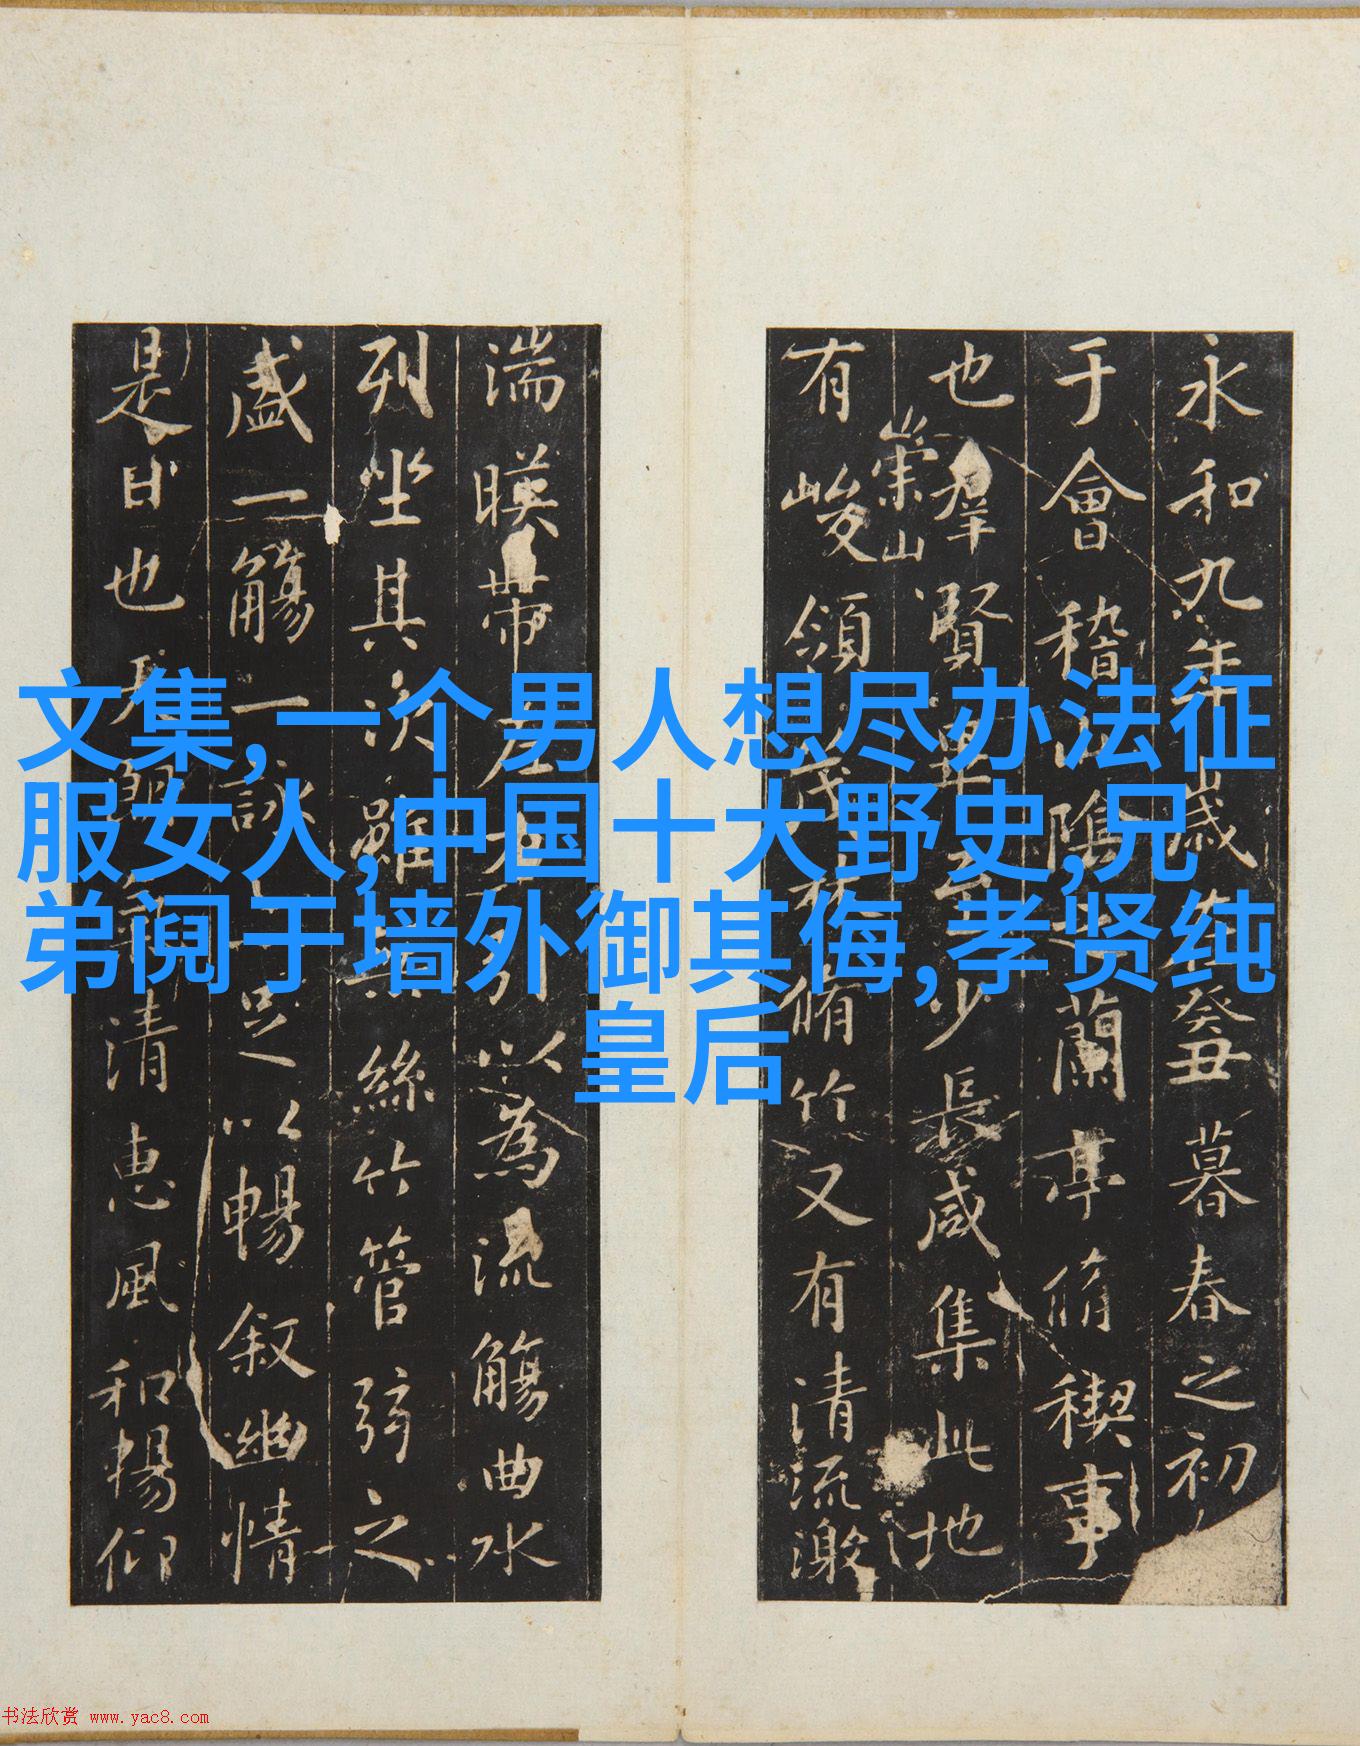 永和九年歲在癸丑暮春之初
于會稽山陰之蘭亭脩禊事
也羣賢畢至少長咸集此地
有崇山峻領茂林脩竹又有清流激
湍暎帶左右引以為流觴曲水
列坐其次雖無絲竹管弦之
盛一觴一詠亦足以暢叙幽情
是日也天朗氣清惠風和暢仰
文集,一个男人想尽办法征
服女人,中国十大野史,兄
弟阋于墙外御其侮,孝贤纯
皇后
书法欣赏 www.yac8.com